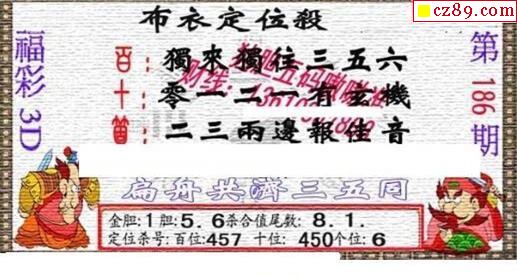 cz89.com
布衣定位殺
福彩3D
第186期
百：獨來獨往三五六
十：零一二一有玄機
個：二三兩邊報佳音
扁舟共濟三五同
金胆:1胆:5.6杀合值尾数:8.1.
定位杀号:百位:457 十位:450个位:6